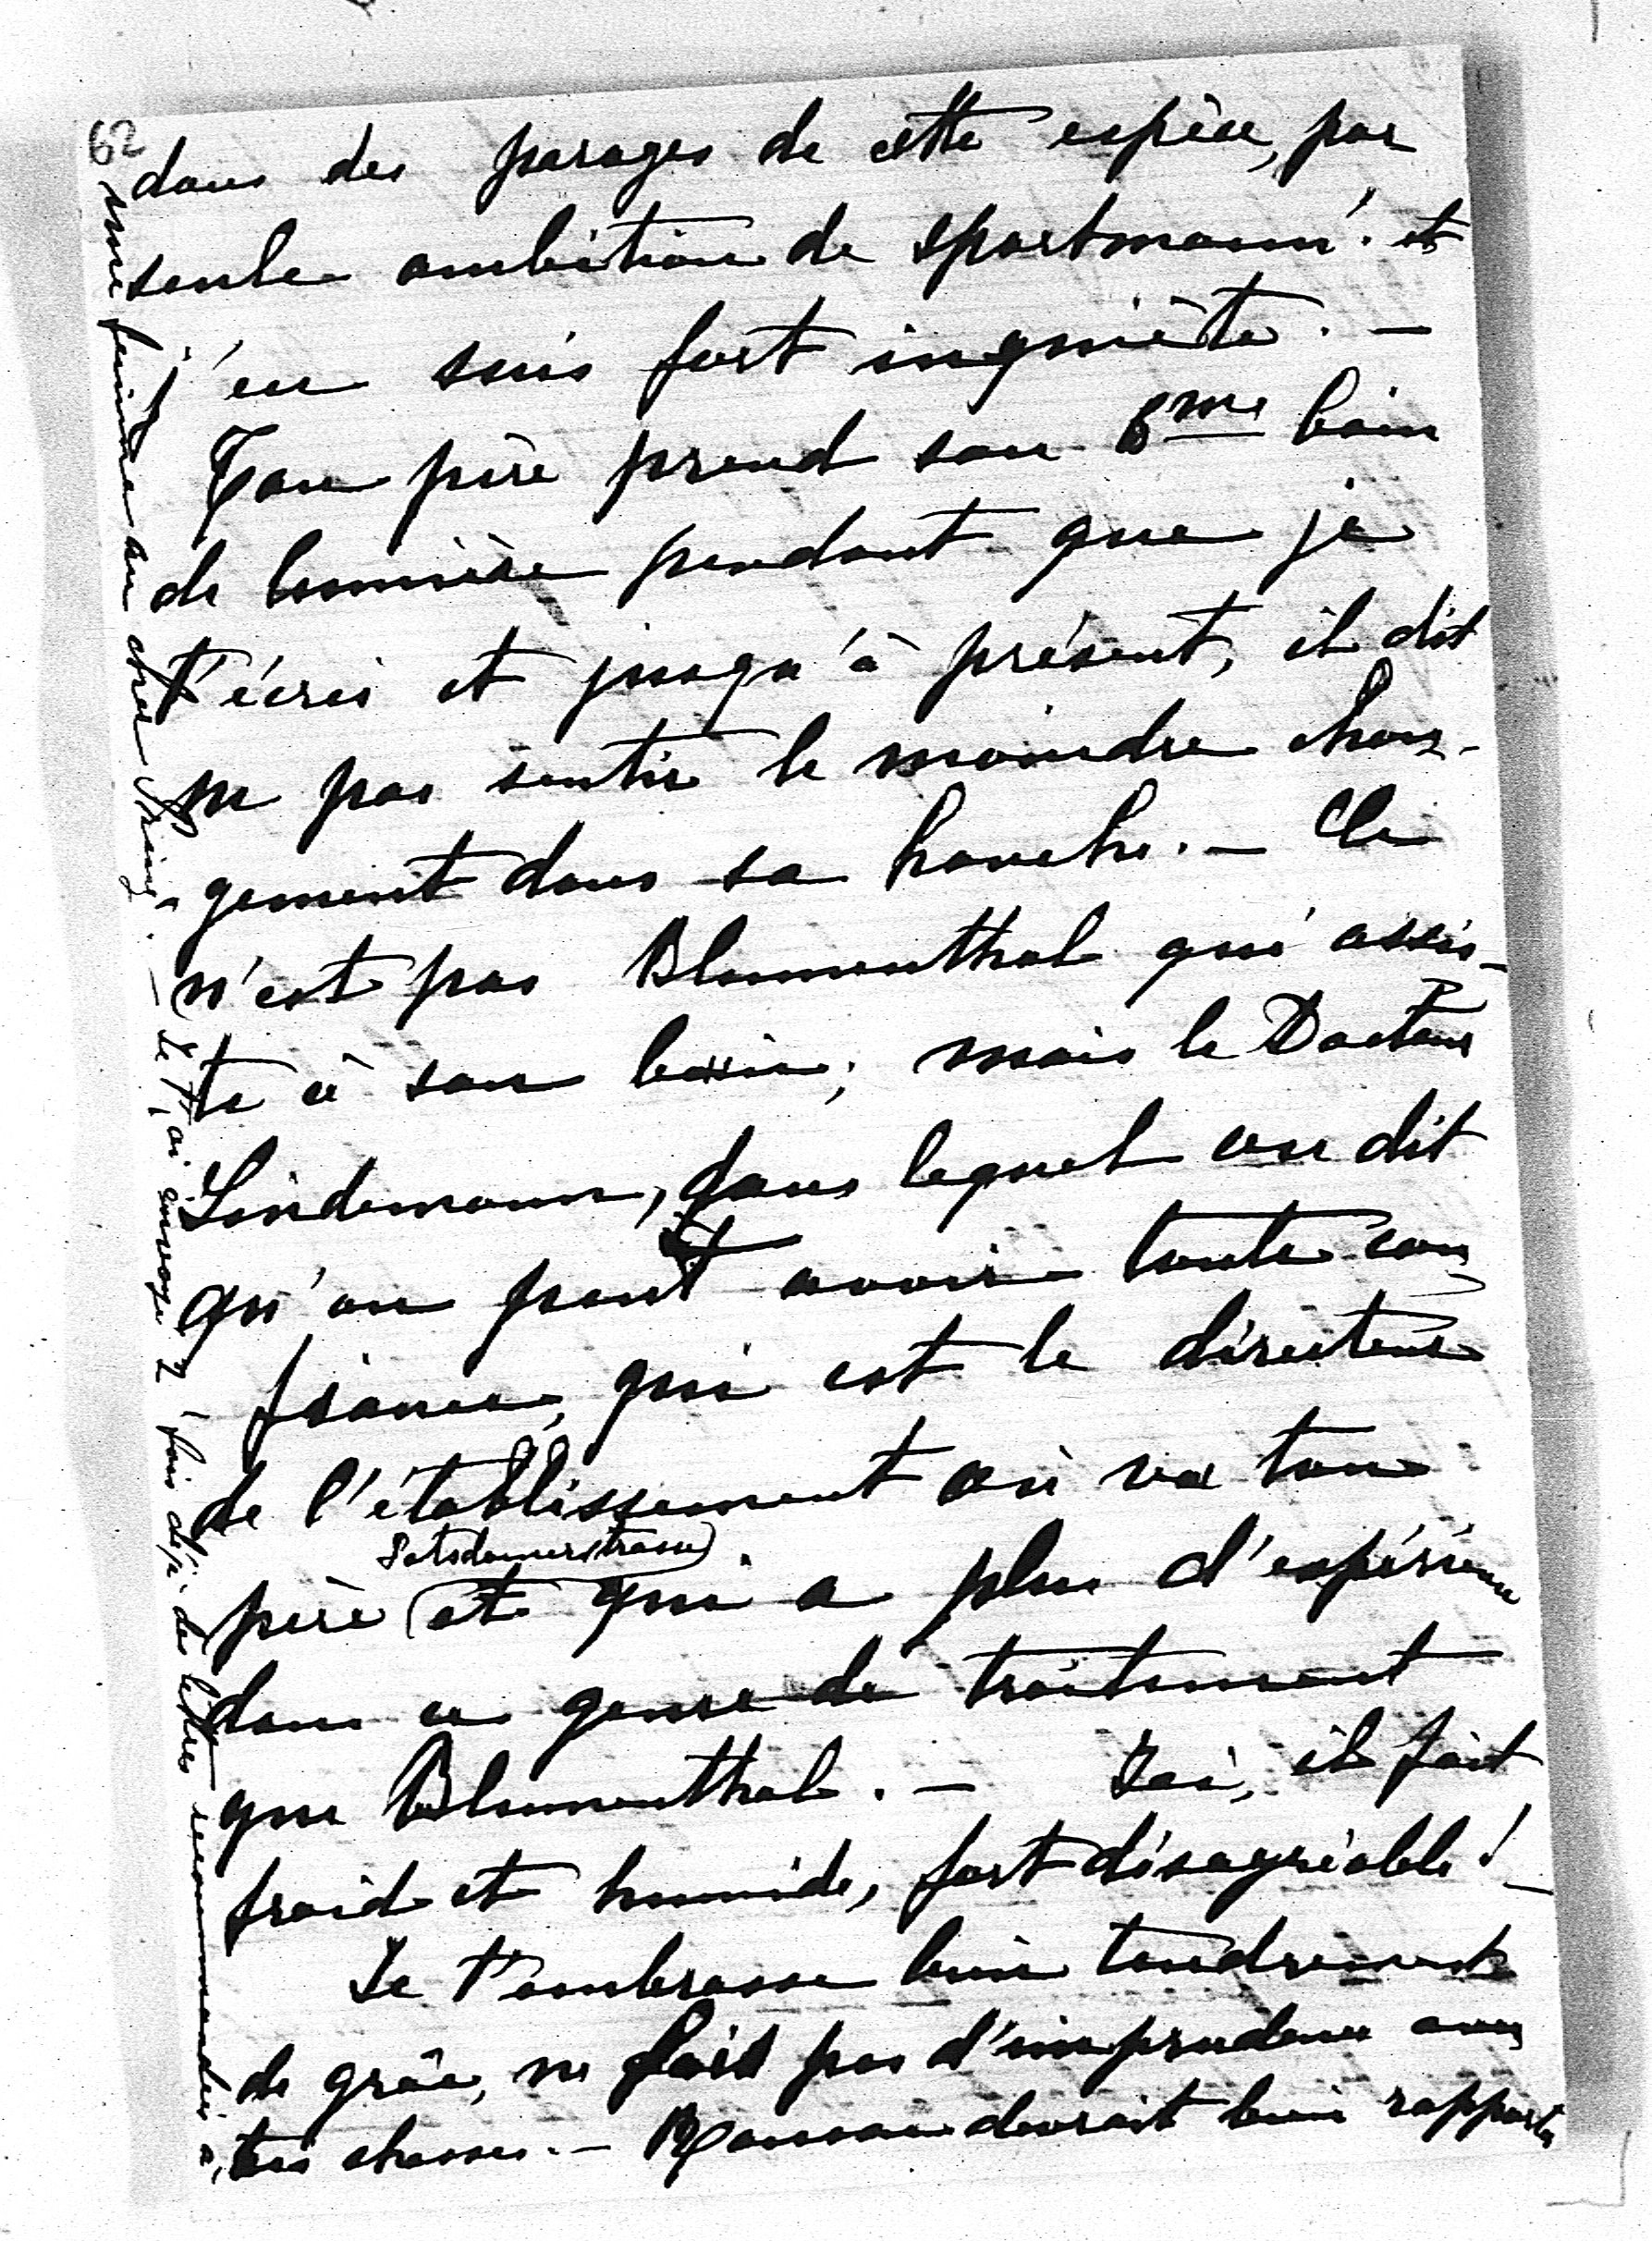 62
dans des parages de cette espèce, par
seule ambition de sportmann! et
j'en suis fort inquiète. —
Ton père prend son 6me bain
de lumière pendant que je
t'écris et jusqu'à présent, il dit
ne pas sentir le moindre chan-
gement dans sa hanche. — Ce
n'est pas Blumenthal qui assis-
te à son bain, mais le Docteur
Lindemann, dans lequel on dit
qu'on peut avoir toute con-
fiance, qui est le directeur
de l'établissement où va ton
Potsdamerstrasse
père et qui a plus d'expérience
dans ce genre de traitement
que Blumenthal. — Ici, il fait
froid et humide, fort désagréable! —
Je t'embrasse bien tendrement
de grâce, ne fais pas d'imprudence avec
tes chasses. — devrait bien rapporter
une au cher — Je t'ai envoyé 2 fois déjà des lettres recommandées